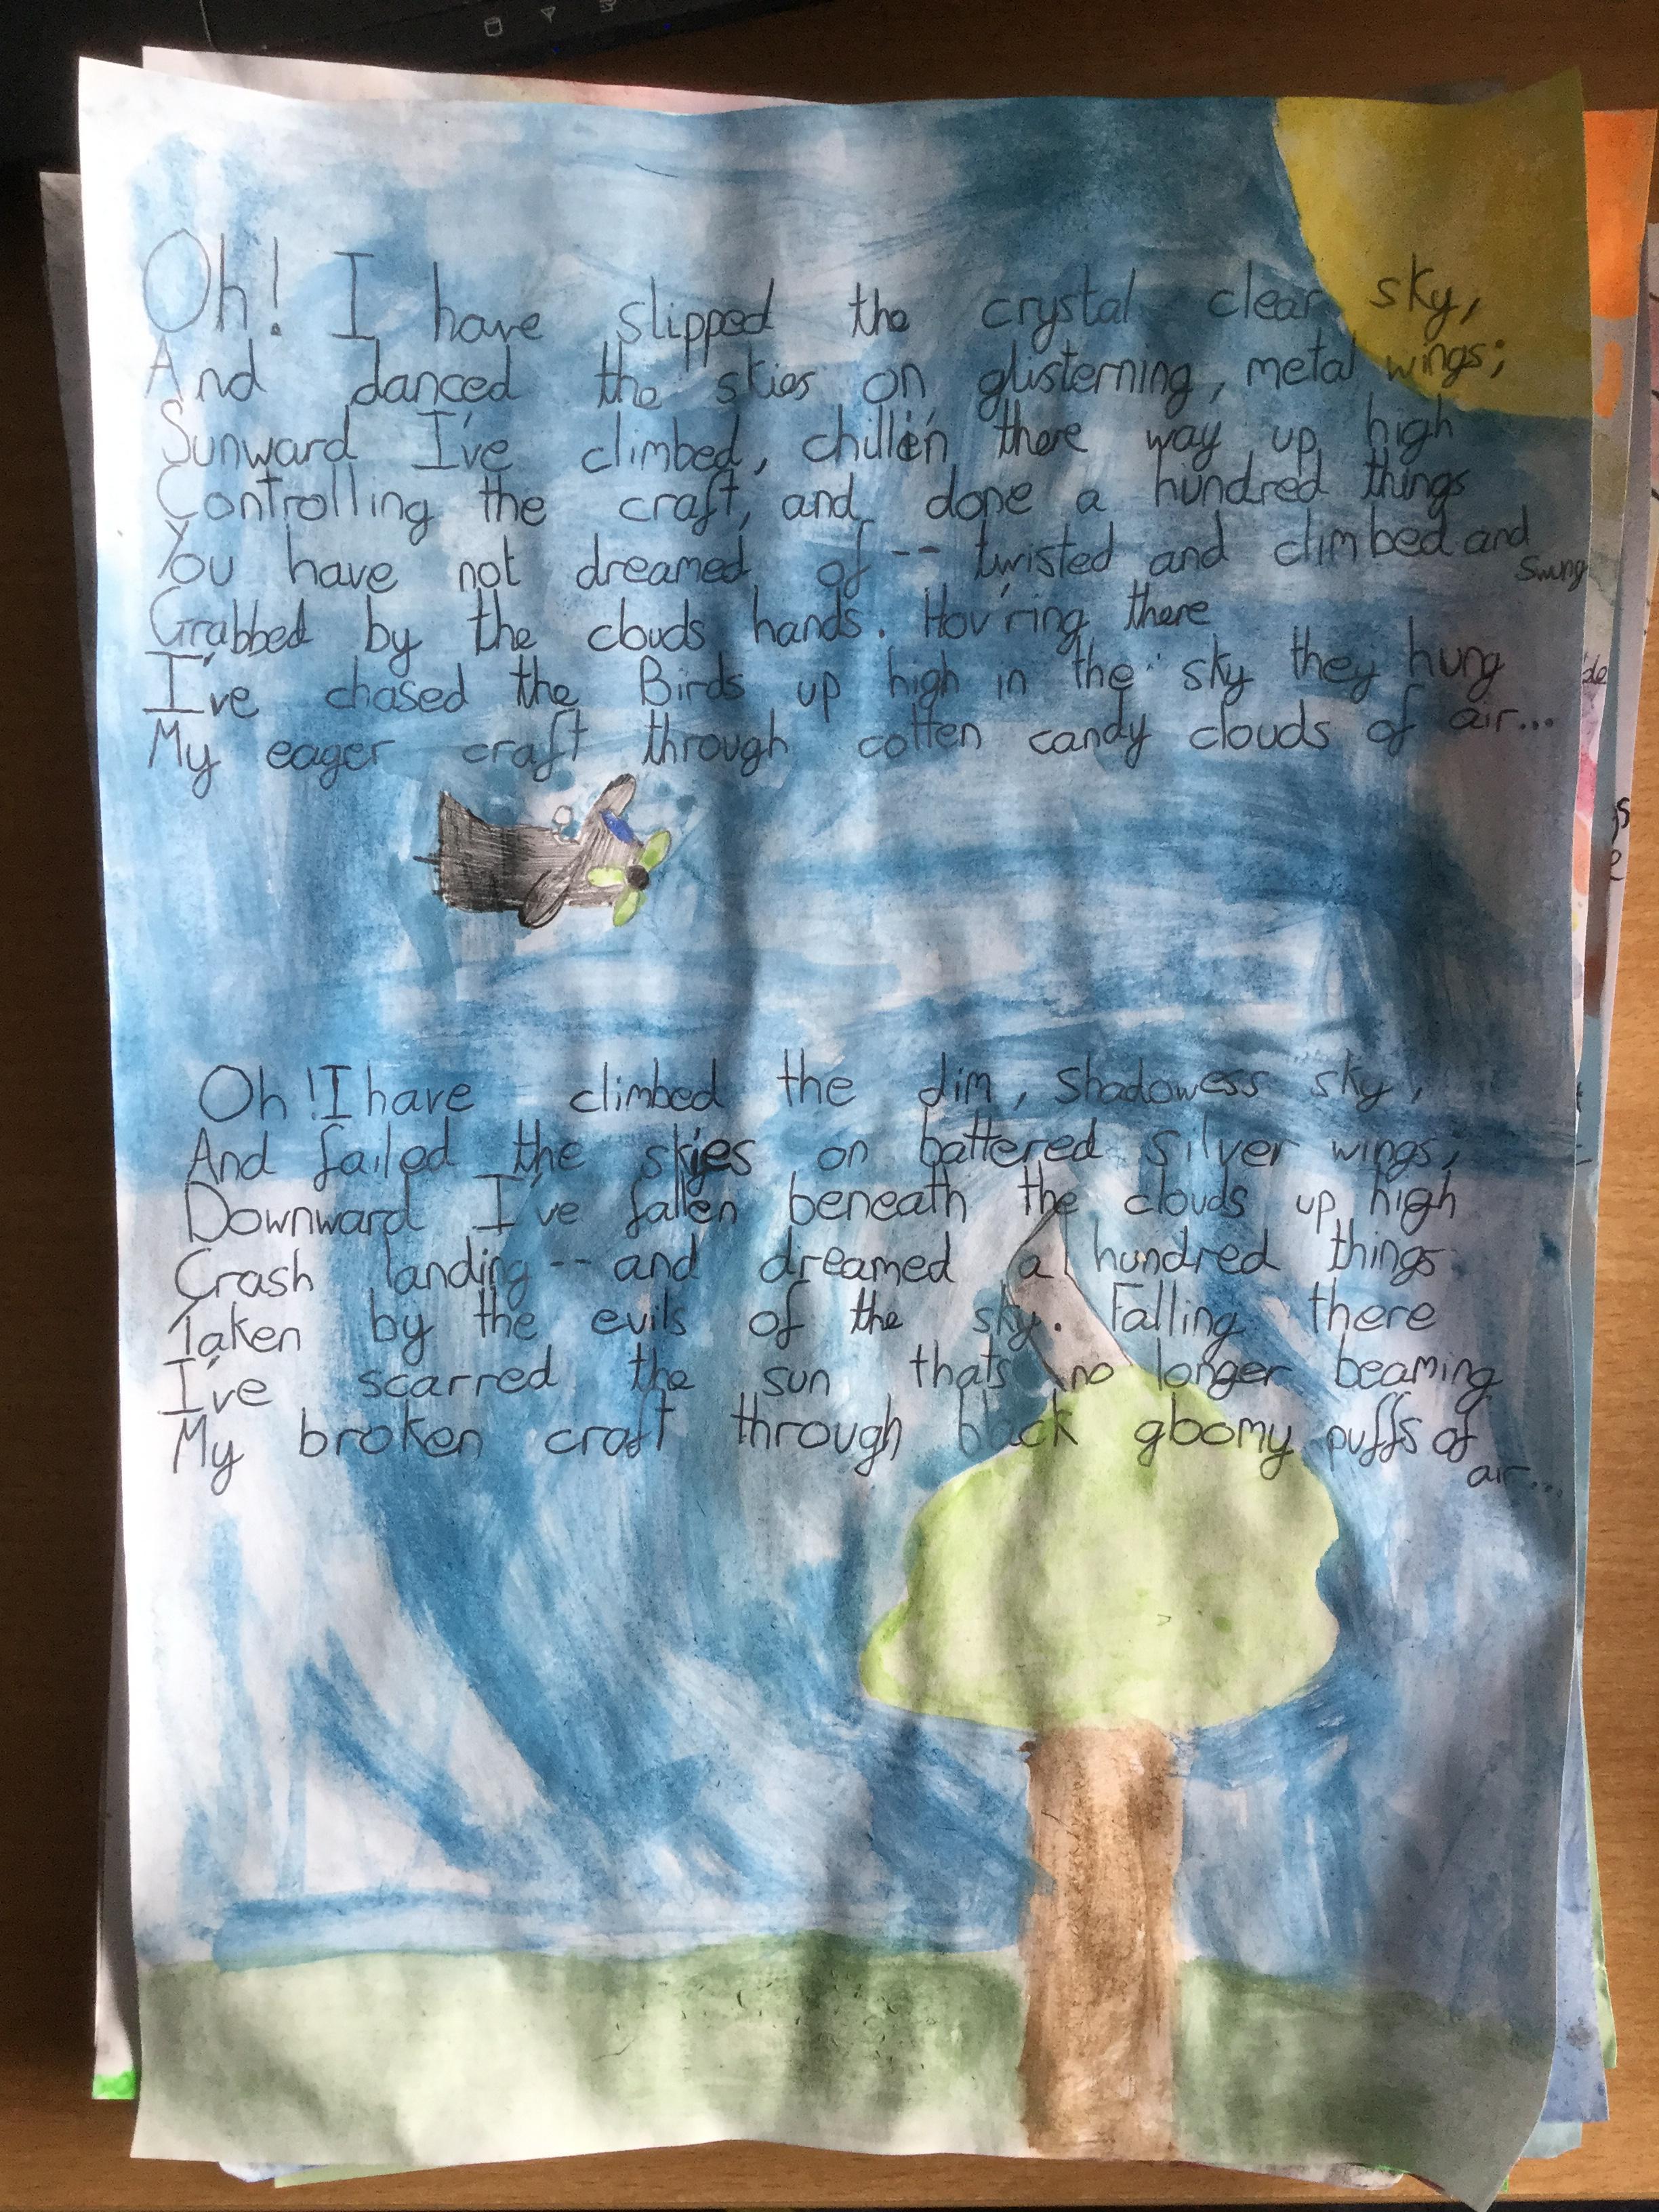 Oh! I have slipped the crystal clear sky,
And danced the skies on glisterning, metal wings;
Sunward I've climbed, chillin' there way up high
Controlling the craft, and done a hundred things
You have not dreamed of -- twisted and climbed and swung
Grabbed by the clouds hands. Hov'ring there
I've chased the Birds up high in the sky they hung
My eager craft through cotten candy clouds of air...
Oh! I have climbed the dim, shadowess sky,
And failed the skies on battered silver wings;
Downward I've fallen beneath the clouds up high
Crash landing -- and dreamed a hundred things
Taken by the evils of the sky. Falling there
I've scarred the sun thats no longer beaming
My broken craft through black gloomy puffs of air...